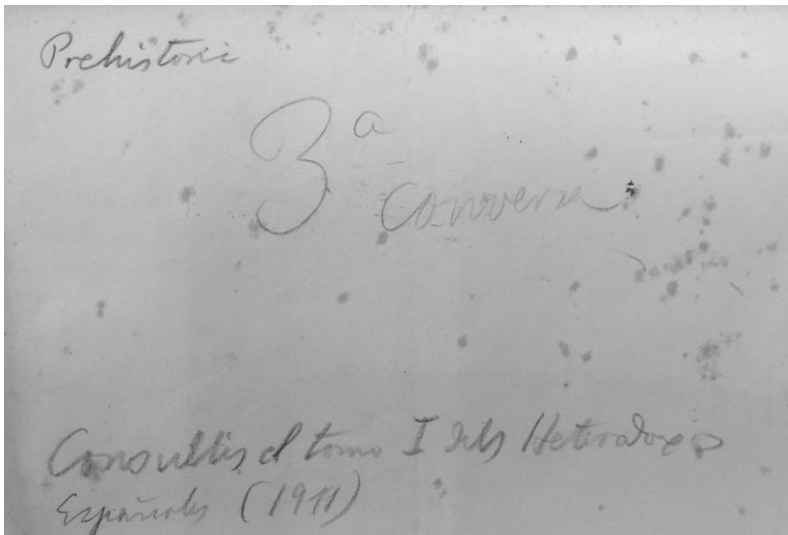 Prehistoric
3ª
conversa
Consultis el tomo I dels Heterodoxos
Españoles (1911)